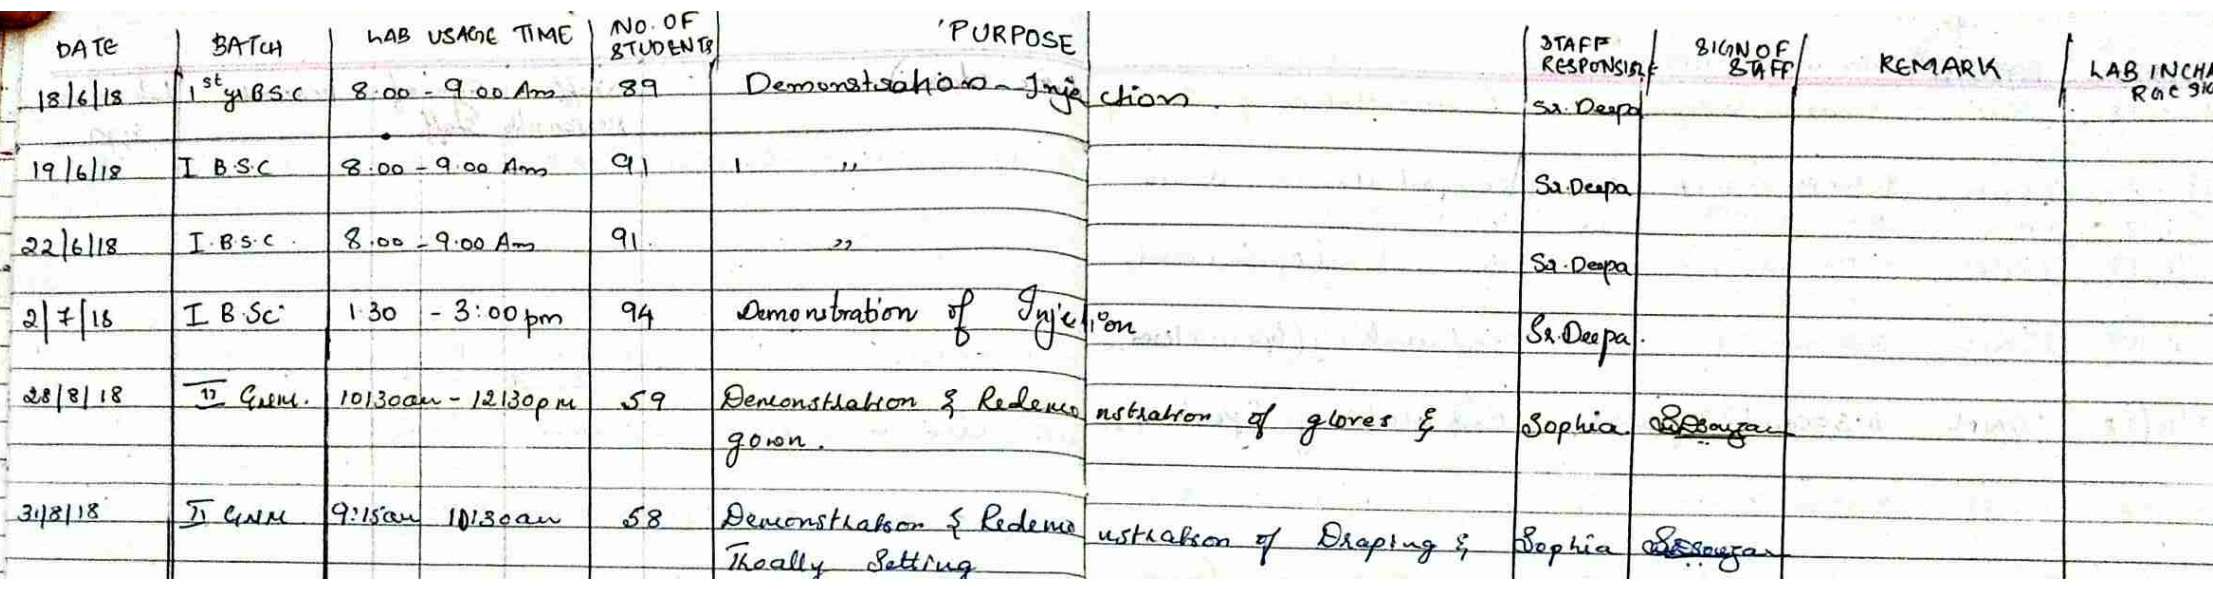 DATE BATCH LAB USAGE TIME NO. OF STUDENTS PURPOSE STAFF RESPONSIBLE SIGN OF STAFF REMARK LAB INCHA
18/6/18 1st yr B.S.C 8.00 - 9.00 Am 89 Demonstration - Injection. Sr. Deepa
19/6/18 I B.S.C 8.00 - 9.00 Am 91 " Sr. Deepa
22/6/18 I.B.S.C. 8.00 - 9.00 Am 91. " Sr. Deepa
2/7/18 I B.Sc 1.30 - 3:00 pm 94 Demonstration of Injection Sr. Deepa.
28/8/18 II GNM. 10:30am - 12:30pm 59 Demonstration & Redemonstration of gloves & Sophia.
gown.
31/8/18 II GNM 9:15am 10:30am 58 Demonstration & Redemonstration of Draping & Sophia
Setting